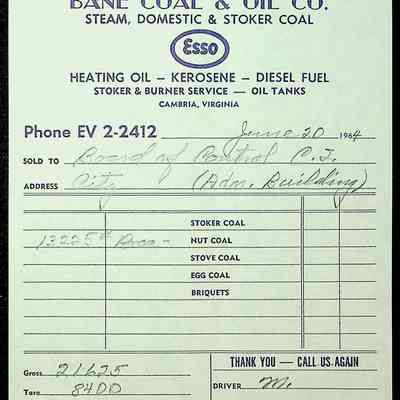 BANE COAL & OIL CO.
STEAM, DOMESTIC & STOKER COAL
Esso
HEATING OIL — KEROSENE — DIESEL FUEL
STOKER & BURNER SERVICE — OIL TANKS
CAMBRIA, VIRGINIA
Phone EV 2-2412 June 20 1964
SOLD TO Board of Control C. I.
ADDRESS City (Adm. Building)
STOKER COAL
13225# NUT COAL
STOVE COAL
EGG COAL
BRIQUETS
Gross 21625
THANK YOU — CALL US AGAIN
Tare 8400
DRIVER M.